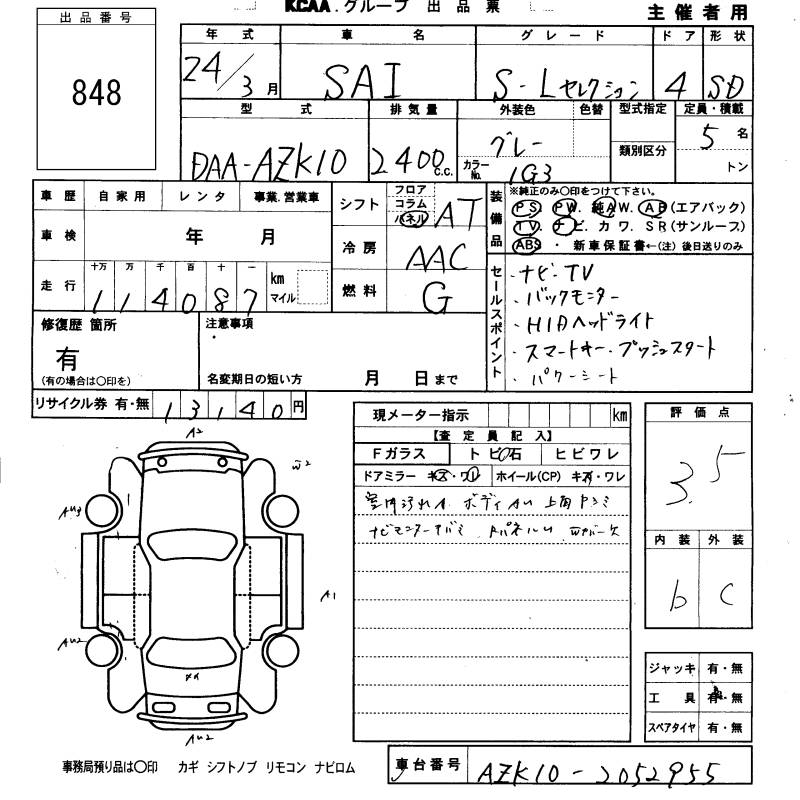 KCAA.グループ 出品票
主催者用
出品番号
848
年式 車名 グレード ドア 形状
24/3月 SAI S-Lセレクション 4 SD
型式 排気量 外装色 色替 型式指定 定員・積載
DAA-AZK10 2400c.c. グレー カラーNo. 1G3 類別区分 5名 トン
車歴 自家用 レンタ 事業.営業車
車検 年 月
走行 十万 万 千 百 十 一 km マイル
114087
シフト フロア コラム パネル AT
冷房 AAC
燃料 G
装備品 ※純正のみ〇印をつけて下さい。
PS. PW. 純AW. AB(エアバック)
TV. ナビ. カワ. SR(サンルーフ)
ABS ・ 新車保証書←(注)後日送りのみ
セールスポイント
・ナビ・TV
・バックモニター
・HIDヘッドライト
・スマートキー・プッシュスタート
・パワーシート
修復歴 箇所
有
(有の場合は〇印を)
注意事項
名変期日の短い方 月 日まで
リサイクル券 有・無 13140円
現メーター指示 km
【査定員記入】
Fガラス トビ石 ヒビワレ
ドアミラー キズ・ワレ ホイール(CP) キズ・ワレ
室内汚れA ボディAU
評価点
3.5
内装 外装
b C
A2
W2
AU3
A1
AU2
AU2
ジャッキ 有・無
工具 有・無
スペアタイヤ 有・無
事務局預り品は〇印 カギ シフトノブ リモコン ナビロム
車台番号 AZK10-2052955